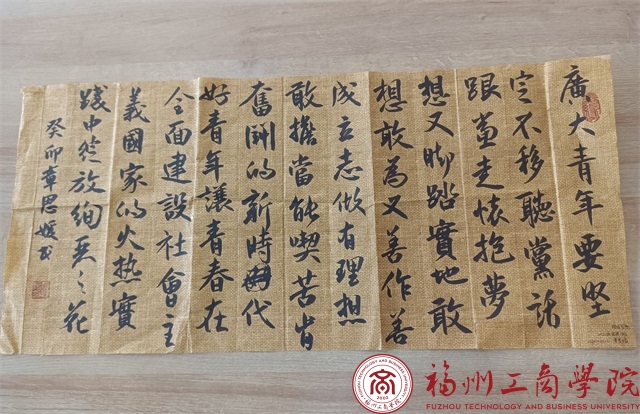 廣大青年要堅
定不移聽黨話
跟黨走懷抱夢
想又腳踏實地敢
想敢為又善作善
成立志做有理想
敢擔當能喫苦肯
奮鬭的新時代
好青年讓青春在
全面建設社會主
義國家的火熱實
踐中綻放絢麗之花
癸卯章思媛書
福州工商学院
FUZHOU TECHNOLOGY AND BUSINESS UNIVERSITY
2002